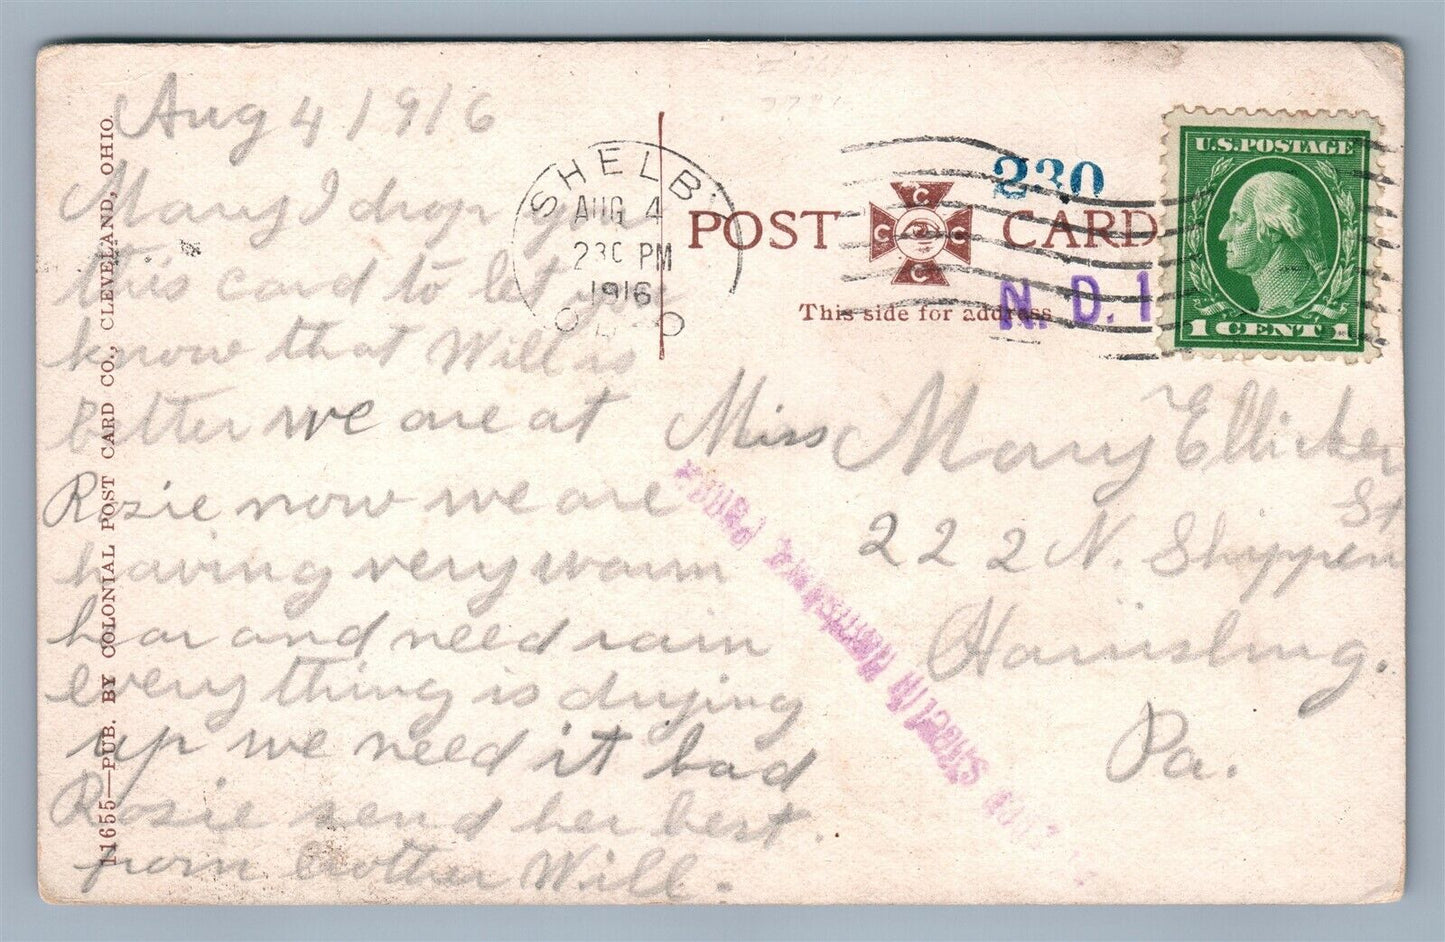 Aug 4 1916
Mary I drop you
this card to let you
know that Will is
better we are at
Rosie now we are
having very warm
hear and need rain
every thing is drying
up we need it bad
Rosie send her best.
from brother Will.
11655—PUB. BY COLONIAL POST CARD CO., CLEVELAND, OHIO.
SHELBY
AUG 4
230 PM
1916
POST CARD
C C C C
This side for address
230
N. D. 1
U.S. POSTAGE
1 CENT 1
Miss Mary Ellicker
222 N. Shippen
St
Harrisburg.
Pa.